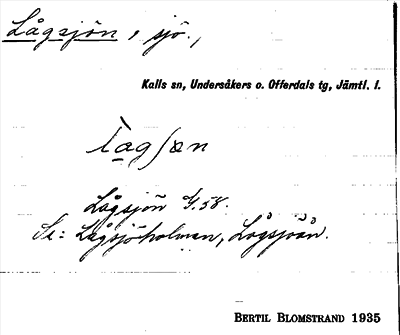 Lågsjön, sjö.,
Kalls sn, Undersåkers o. Offerdals tg, Jämtl. l.
Lågsjön G.58.
Se: Lågsjöholmen, Lågsjöån.
BERTIL BLOMSTRAND 1935